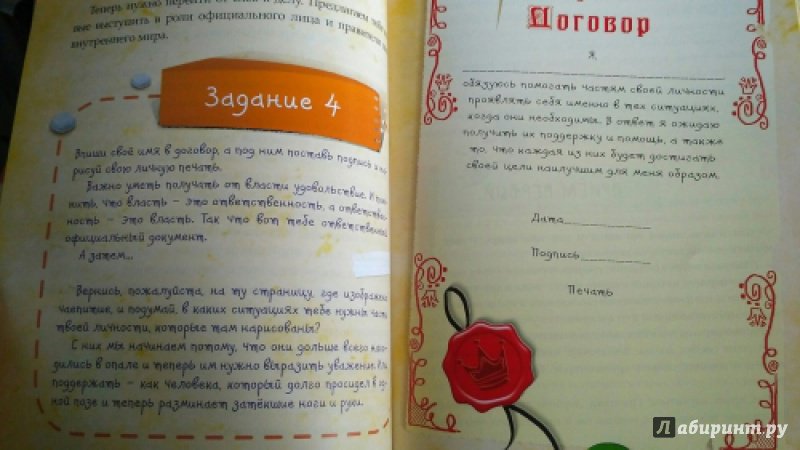 Теперь нужно перейти от слов к делу. Предлагаем тебе
вые выступить в роли официального лица и правителя
внутреннего мира.
Задание 4
Впиши своё имя в договор, а под ним поставь подпись и
рисуй свою личную печать.
Важно уметь получать от власти удовольствие. И
нить, что власть – это ответственность, а ответствен
ность – это власть. Так что вот тебе ответственный
официальный документ.
А затем...
Вернись, пожалуйста, на ту страницу, где изображено
чаепитие, и подумай, в каких ситуациях тебе нужны части
твоей личности, которые там нарисованы?
С них мы начинаем потому, что они дольше всего нахо
дились в опале и теперь им нужно выразить уважение. Их
поддержать – как человека, который долго просидел в од
ной позе и теперь разминает затёкшие ноги и руки.
Договор
Я
обязуюсь помогать частям своей личности
проявлять себя именно в тех ситуациях,
когда они необходимы. В ответ я ожидаю
получить их поддержку и помощь, а также
то, что каждая из них будет достигать
своей цели наилучшим для меня образом.
Дата
Подпись
Печать
Лабиринт.ру